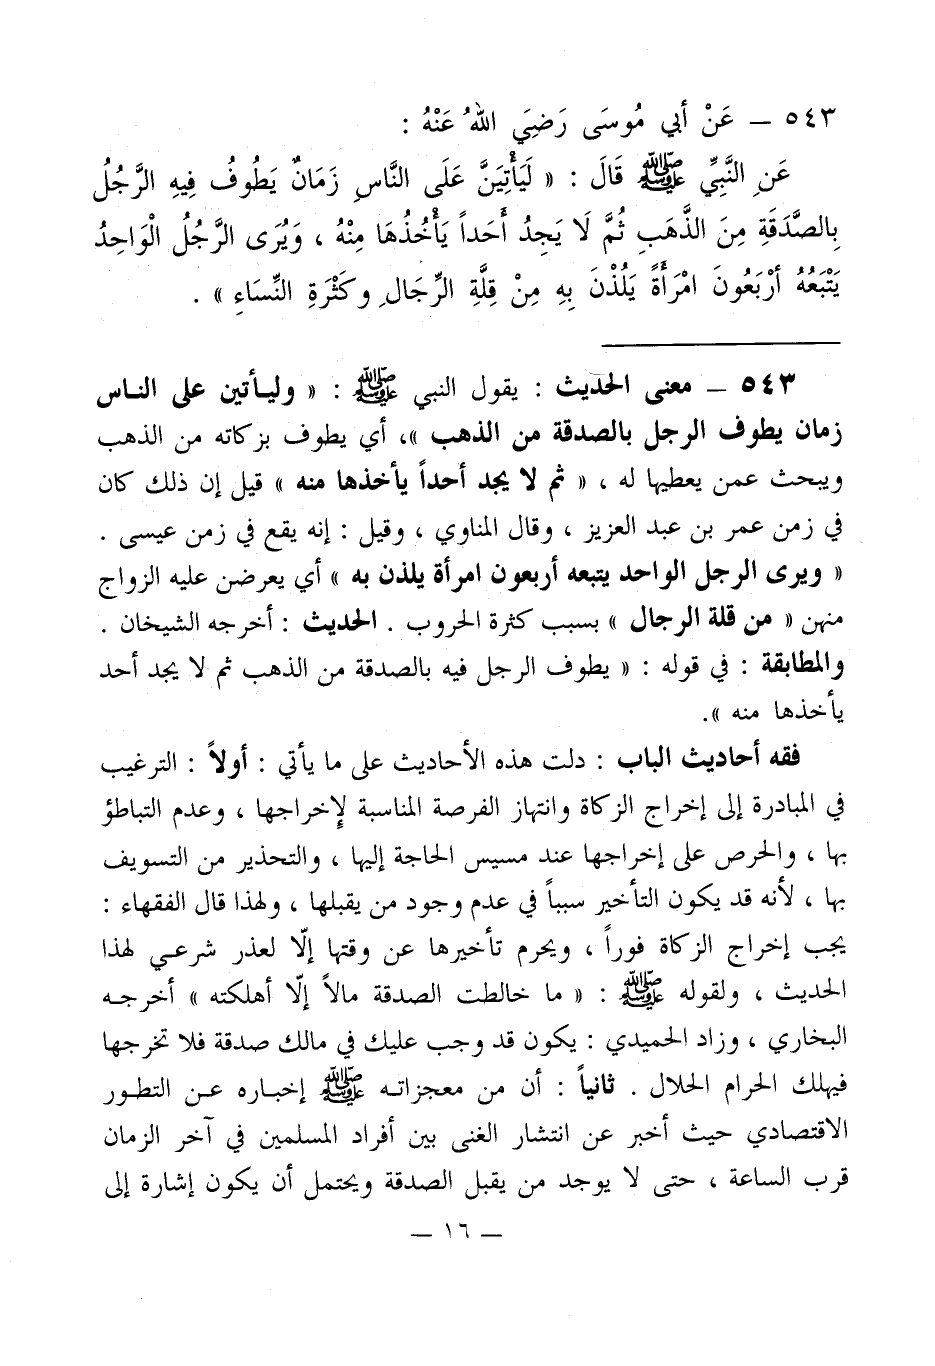 ٥٤٣ — عَنْ أبي مُوسَى رَضِيَ اللهُ عَنْهُ :
عَنِ النَّبِّي ﷺ قَالَ : « لَيَأْتِيَنَّ عَلَى النَّاسِ زَمَانٌ يَطُوفُ فِيهِ الرَّجُلُ
بِالصَّدَقَةِ مِنَ الذَّهَبِ ثُمَّ لَا يَجِدُ أَحَداً يَأْخُذُهَا مِنْهُ ، وَيُرَى الرَّجُلُ الْوَاحِدُ
يَتْبَعُهُ أرْبَعُونَ امْرَأَةً يَلُذْنَ بِهِ مِنْ قِلَّةِ الرِّجَالِ وكَثْرَةِ النِّسَاءِ » .
٥٤٣ — معنى الحديث : يقول النبي ﷺ : « وليأتين على الناس
زمان يطوف الرجل بالصدقة من الذهب »، أي يطوف بزكاته من الذهب
ويبحث عمن يعطيها له ، « ثم لا يجد أحداً يأخذها منه » قيل إن ذلك كان
في زمن عمر بن عبد العزيز ، وقال المناوي ، وقيل : إنه يقع في زمن عيسى .
« ويرى الرجل الواحد يتبعه أربعون امرأة يلذن به » أي يعرضن عليه الزواج
منهن « من قلة الرجال » بسبب كثرة الحروب . الحديث : أخرجه الشيخان .
والمطابقة : في قوله : « يطوف الرجل فيه بالصدقة من الذهب ثم لا يجد أحد
يأخذها منه ».
فقه أحاديث الباب : دلت هذه الأحاديث على ما يأتي : أولاً : الترغيب
في المبادرة إلى إخراج الزكاة وانتهاز الفرصة المناسبة لإخراجها ، وعدم التباطؤ
بها ، والحرص على إخراجها عند مسيس الحاجة إليها ، والتحذير من التسويف
بها ، لأنه قد يكون التأخير سبباً في عدم وجود من يقبلها ، ولهذا قال الفقهاء :
يجب إخراج الزكاة فوراً ، ويحرم تأخيرها عن وقتها إلّا لعذر شرعي لهذا
الحديث ، ولقوله ﷺ : « ما خالطت الصدقة مالاً إلّا أهلكته » أخرجه
البخاري ، وزاد الحميدي : يكون قد وجب عليك في مالك صدقة فلا تخرجها
فيهلك الحرام الحلال . ثانياً : أن من معجزاته ﷺ إخباره عن التطور
الاقتصادي حيث أخبر عن انتشار الغنى بين أفراد المسلمين في آخر الزمان
قرب الساعة ، حتى لا يوجد من يقبل الصدقة ويحتمل أن يكون إشارة إلى
— ١٦ —